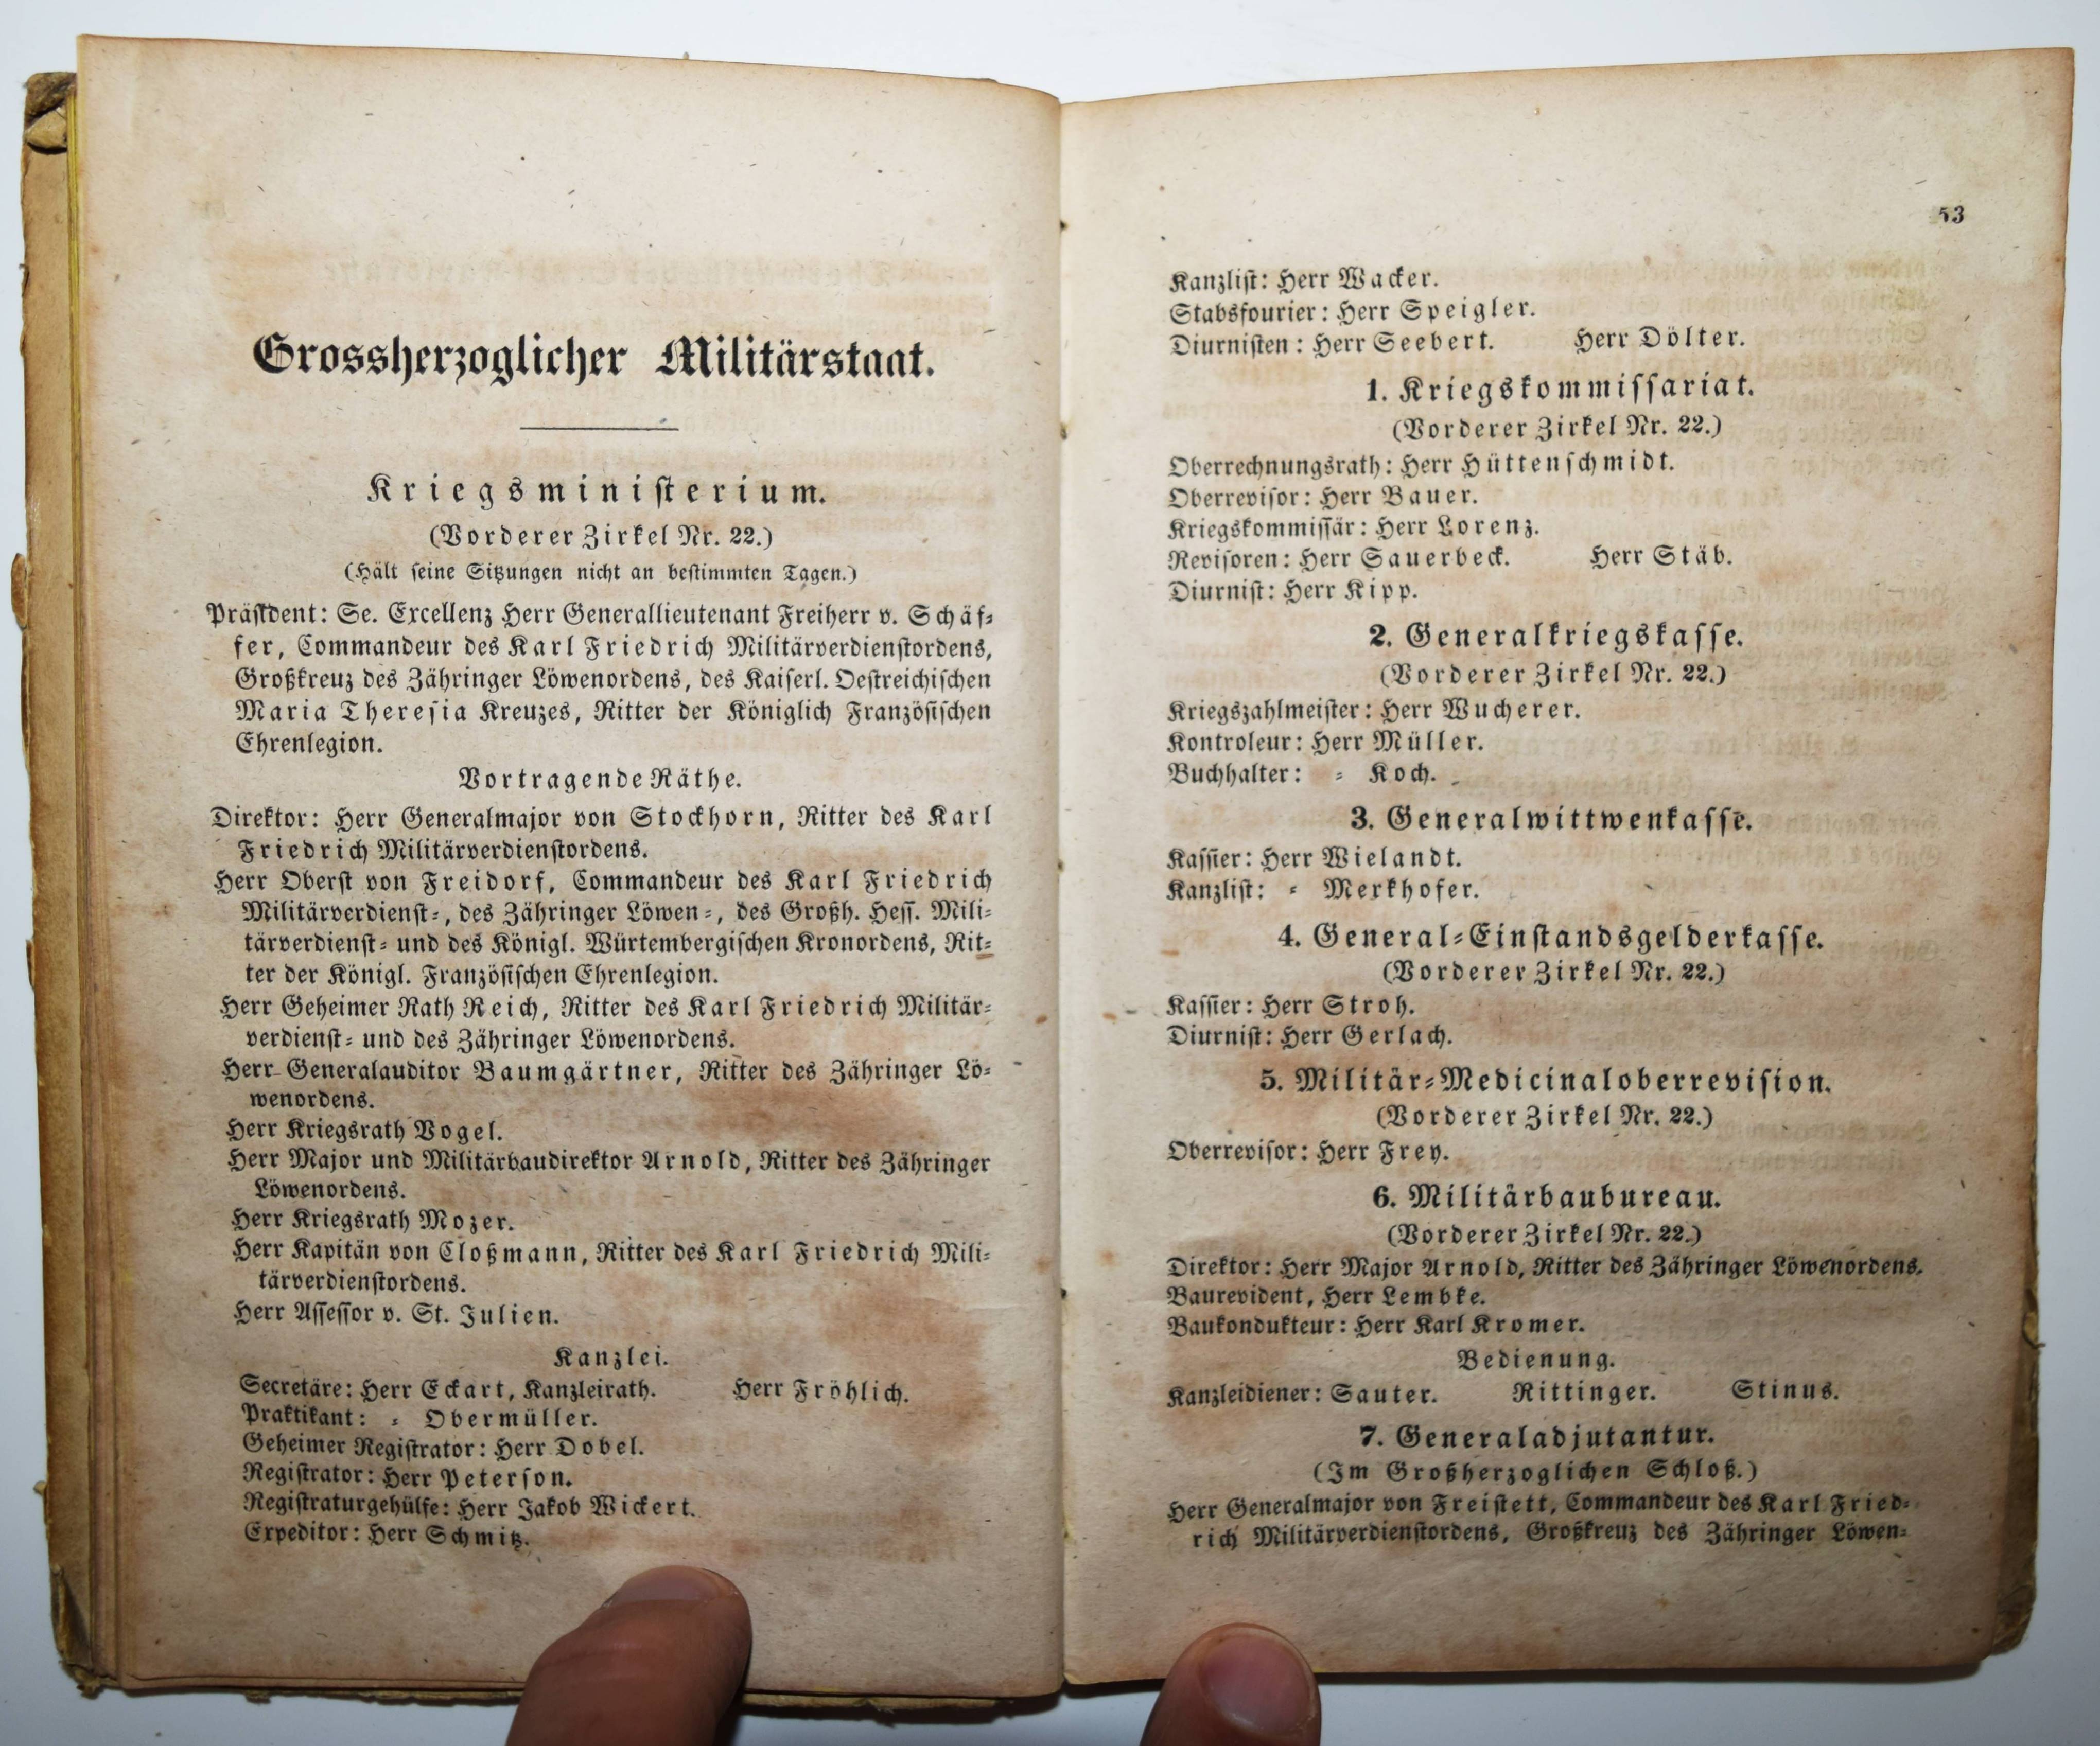 Grossherzoglicher Militärstaat.
Kriegsministerium.
(Vorderer Zirkel Nr. 22.)
(Hält seine Sitzungen nicht an bestimmten Tagen.)
Präsident: Se. Excellenz Herr Generallieutenant Freiherr v. Schäf-
fer, Commandeur des Karl Friedrich Militärverdienstordens,
Großkreuz des Zähringer Löwenordens, des Kaiserl. Oestreichischen
Maria Theresia Kreuzes, Ritter der Königlich Französischen
Ehrenlegion.
Vortragende Räthe.
Direktor: Herr Generalmajor von Stockhorn, Ritter des Karl
Friedrich Militärverdienstordens.
Herr Oberst von Freidorf, Commandeur des Karl Friedrich
Militärverdienst-, des Zähringer Löwen-, des Großh. Hess. Mili-
tärverdienst- und des Königl. Würtembergischen Kronordens, Rit-
ter der Königl. Französischen Ehrenlegion.
Herr Geheimer Rath Reich, Ritter des Karl Friedrich Militär-
verdienst- und des Zähringer Löwenordens.
Herr Generalauditor Baumgärtner, Ritter des Zähringer Lö-
wenordens.
Herr Kriegsrath Vogel.
Herr Major und Militärbaudirektor Arnold, Ritter des Zähringer
Löwenordens.
Herr Kriegsrath Mozer.
Herr Kapitän von Cloßmann, Ritter des Karl Friedrich Mili-
tärverdienstordens.
Herr Assessor v. St. Julien.
Kanzlei.
Secretäre: Herr Eckart, Kanzleirath. Herr Fröhlich.
Praktikant: = Obermüller.
Geheimer Registrator: Herr Dobel.
Registrator: Herr Peterson.
Registraturgehülfe: Herr Jakob Wickert.
Expeditor: Herr Schmitz.
53
Kanzlist: Herr Wacker.
Stabsfourier: Herr Speigler.
Diurnisten: Herr Seebert. Herr Dölter.
1. Kriegskommissariat.
(Vorderer Zirkel Nr. 22.)
Oberrechnungsrath: Herr Hüttenschmidt.
Oberrevisor: Herr Bauer.
Kriegskommissär: Herr Lorenz.
Revisoren: Herr Sauerbeck. Herr Stäb.
Diurnist: Herr Kipp.
2. Generalkriegskasse.
(Vorderer Zirkel Nr. 22.)
Kriegszahlmeister: Herr Wucherer.
Kontroleur: Herr Müller.
Buchhalter: = Koch.
3. Generalwittwenkasse.
Kassier: Herr Wielandt.
Kanzlist: = Merkhofer.
4. General-Einstandsgelderkasse.
(Vorderer Zirkel Nr. 22.)
Kassier: Herr Stroh.
Diurnist: Herr Gerlach.
5. Militär-Medicinaloberrevision.
(Vorderer Zirkel Nr. 22.)
Oberrevisor: Herr Frey.
6. Militärbaubureau.
(Vorderer Zirkel Nr. 22.)
Direktor: Herr Major Arnold, Ritter des Zähringer Löwenordens.
Baurevident, Herr Lembke.
Baukondukteur: Herr Karl Kromer.
Bedienung.
Kanzleidiener: Sauter. Rittinger. Stinus.
7. Generaladjutantur.
(Im Großherzoglichen Schloß.)
Herr Generalmajor von Freistett, Commandeur des Karl Fried-
rich Militärverdienstordens, Großkreuz des Zähringer Löwen-